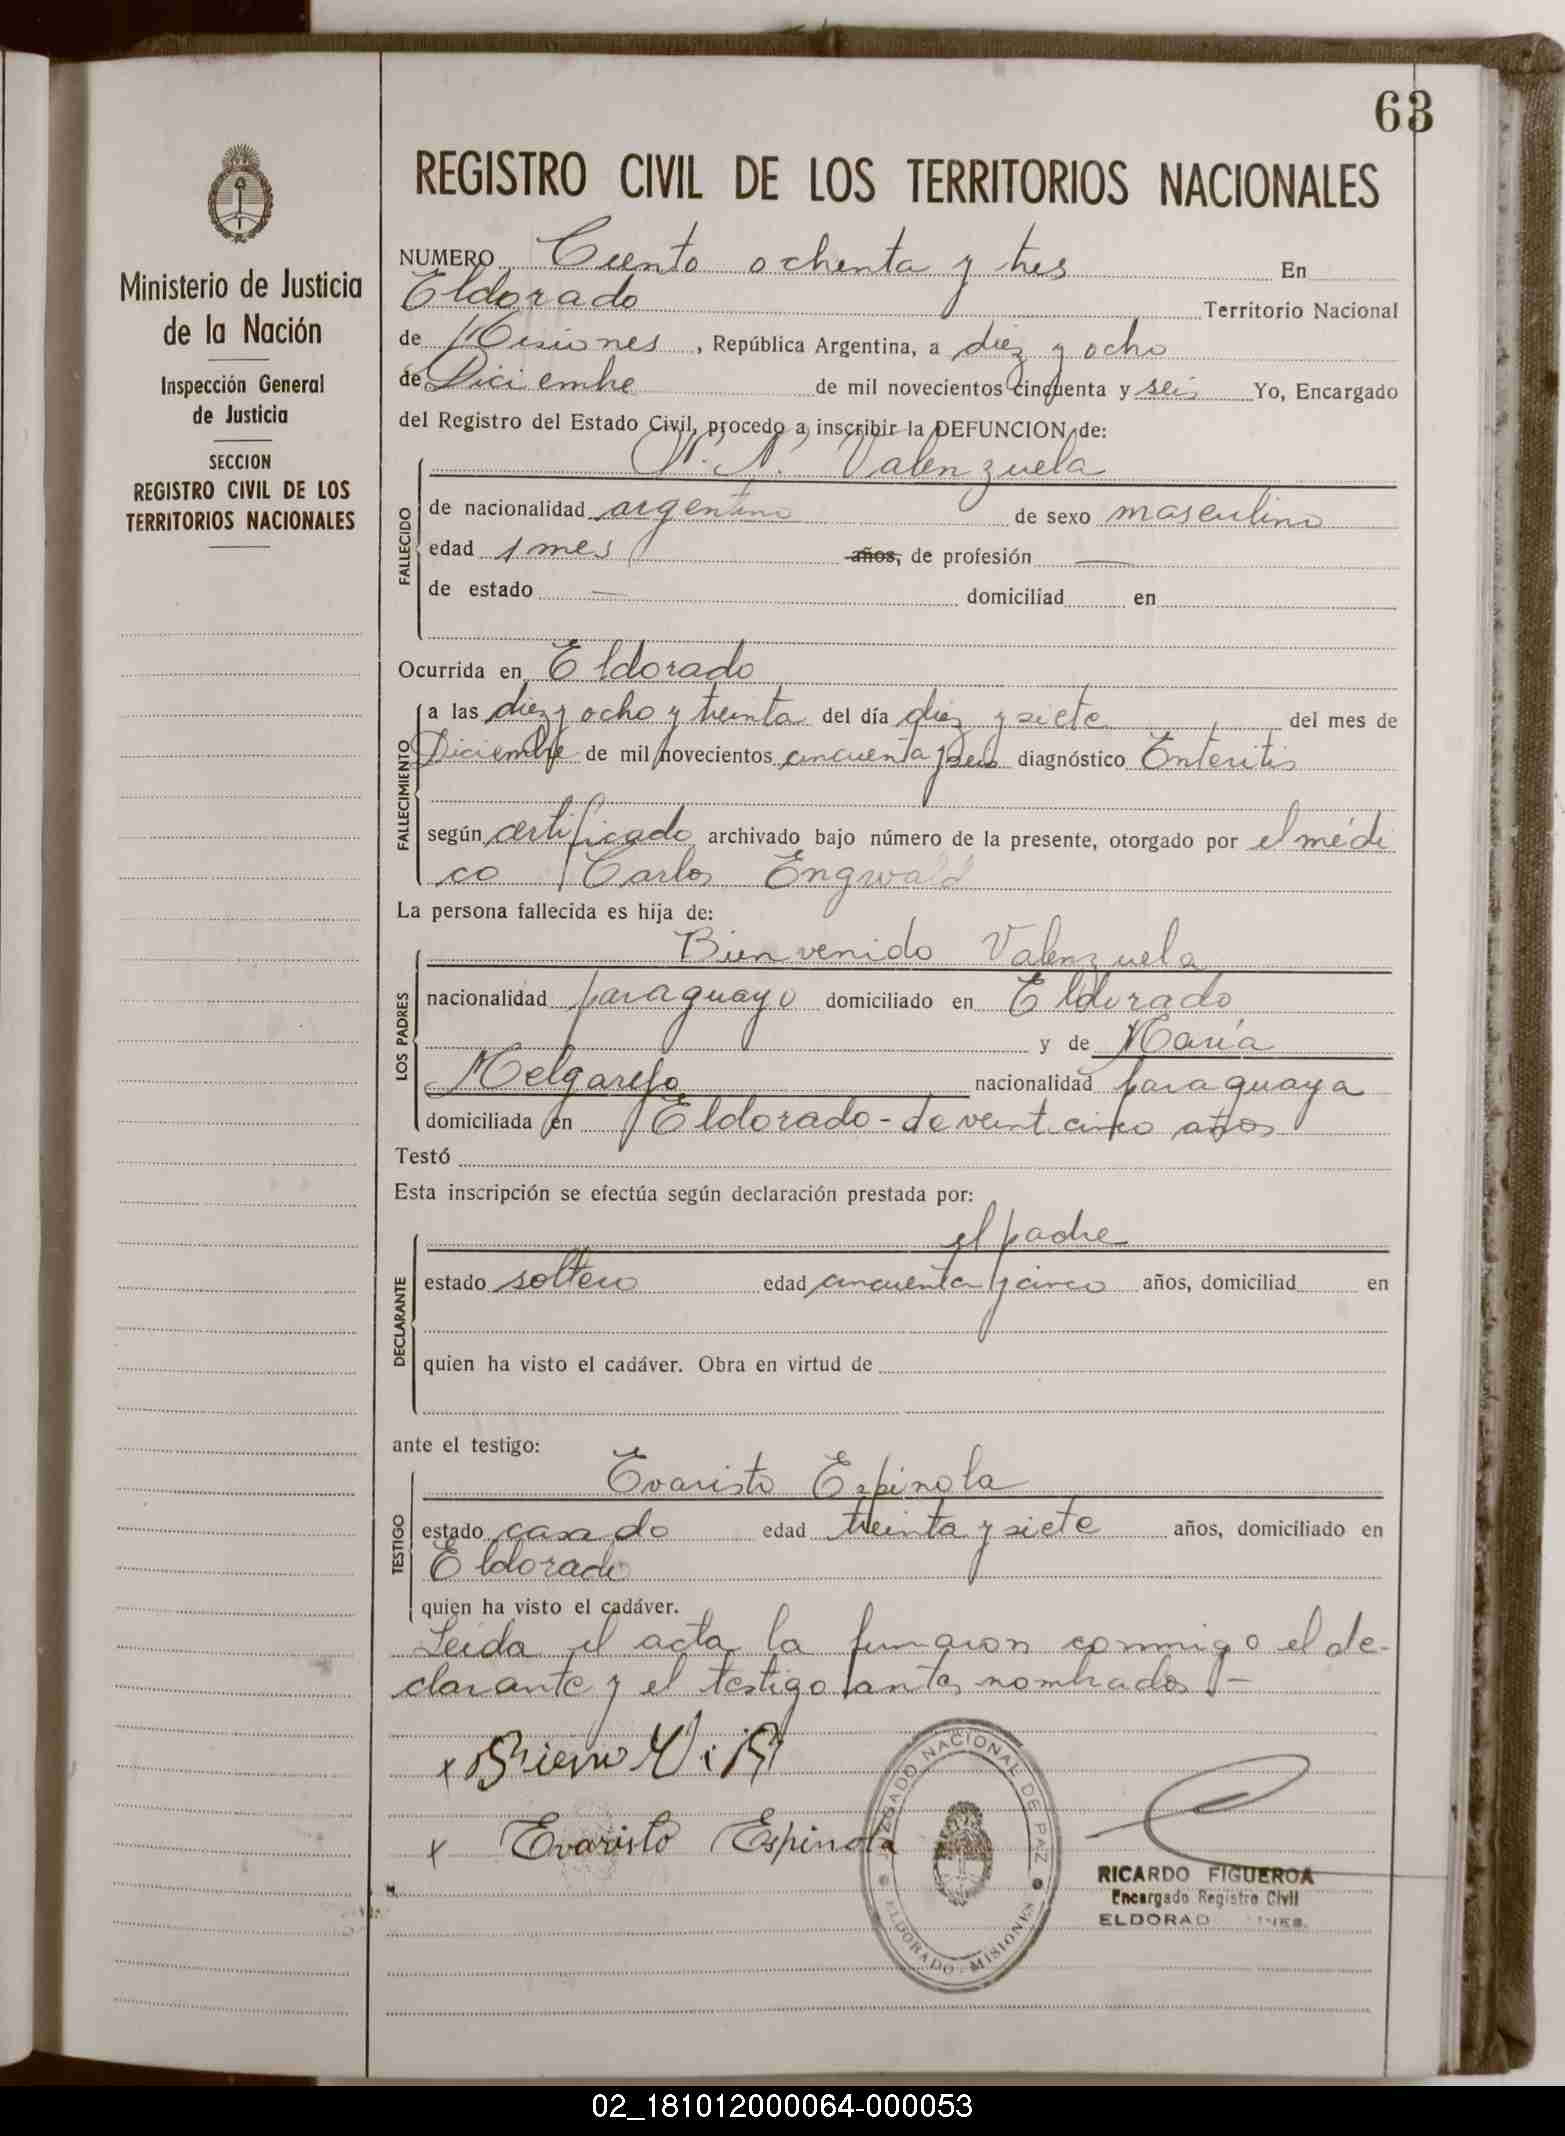 63
Ministerio de Justicia
de la Nación
Inspección General
de Justicia
SECCION
REGISTRO CIVIL DE LOS
TERRITORIOS NACIONALES
REGISTRO CIVIL DE LOS TERRITORIOS NACIONALES
NUMERO Ciento ochenta y tres En
Eldorado Territorio Nacional
de Misiones, República Argentina, a diez y ocho
de Diciembre de mil novecientos cincuenta y seis Yo, Encargado
del Registro del Estado Civil, procedo a inscribir la DEFUNCION de:
N. N. Valenzuela
FALLECIDO
de nacionalidad argentino de sexo masculino
edad 1 mes años, de profesión —
de estado — domiciliad en
Ocurrida en Eldorado
FALLECIMIENTO
a las diez y ocho y treinta del día diez y siete del mes de
Diciembre de mil novecientos cincuenta y seis diagnóstico Enteritis
según certificado archivado bajo número de la presente, otorgado por el médi
co Carlos Engwald
La persona fallecida es hija de:
LOS PADRES
Bienvenido Valenzuela
nacionalidad paraguayo domiciliado en Eldorado
y de María
Melgarejo nacionalidad paraguaya
domiciliada en Eldorado - de veinticinco años
Testó
Esta inscripción se efectúa según declaración prestada por:
DECLARANTE
el padre
estado soltero edad cincuenta y cinco años, domiciliad en
quien ha visto el cadáver. Obra en virtud de
ante el testigo:
TESTIGO
Evaristo Espinola
estado casado edad treinta y siete años, domiciliado en
Eldorado
quien ha visto el cadáver.
Leida el acta la firmaron conmigo el de-
clarante y el testigo antes nombrados. —
x
x Evaristo Espinola
JUZGADO NACIONAL DE PAZ
ELDORADO - MISIONES
RICARDO FIGUEROA
Encargado Registro Civil
ELDORADO
02_181012000064-000053